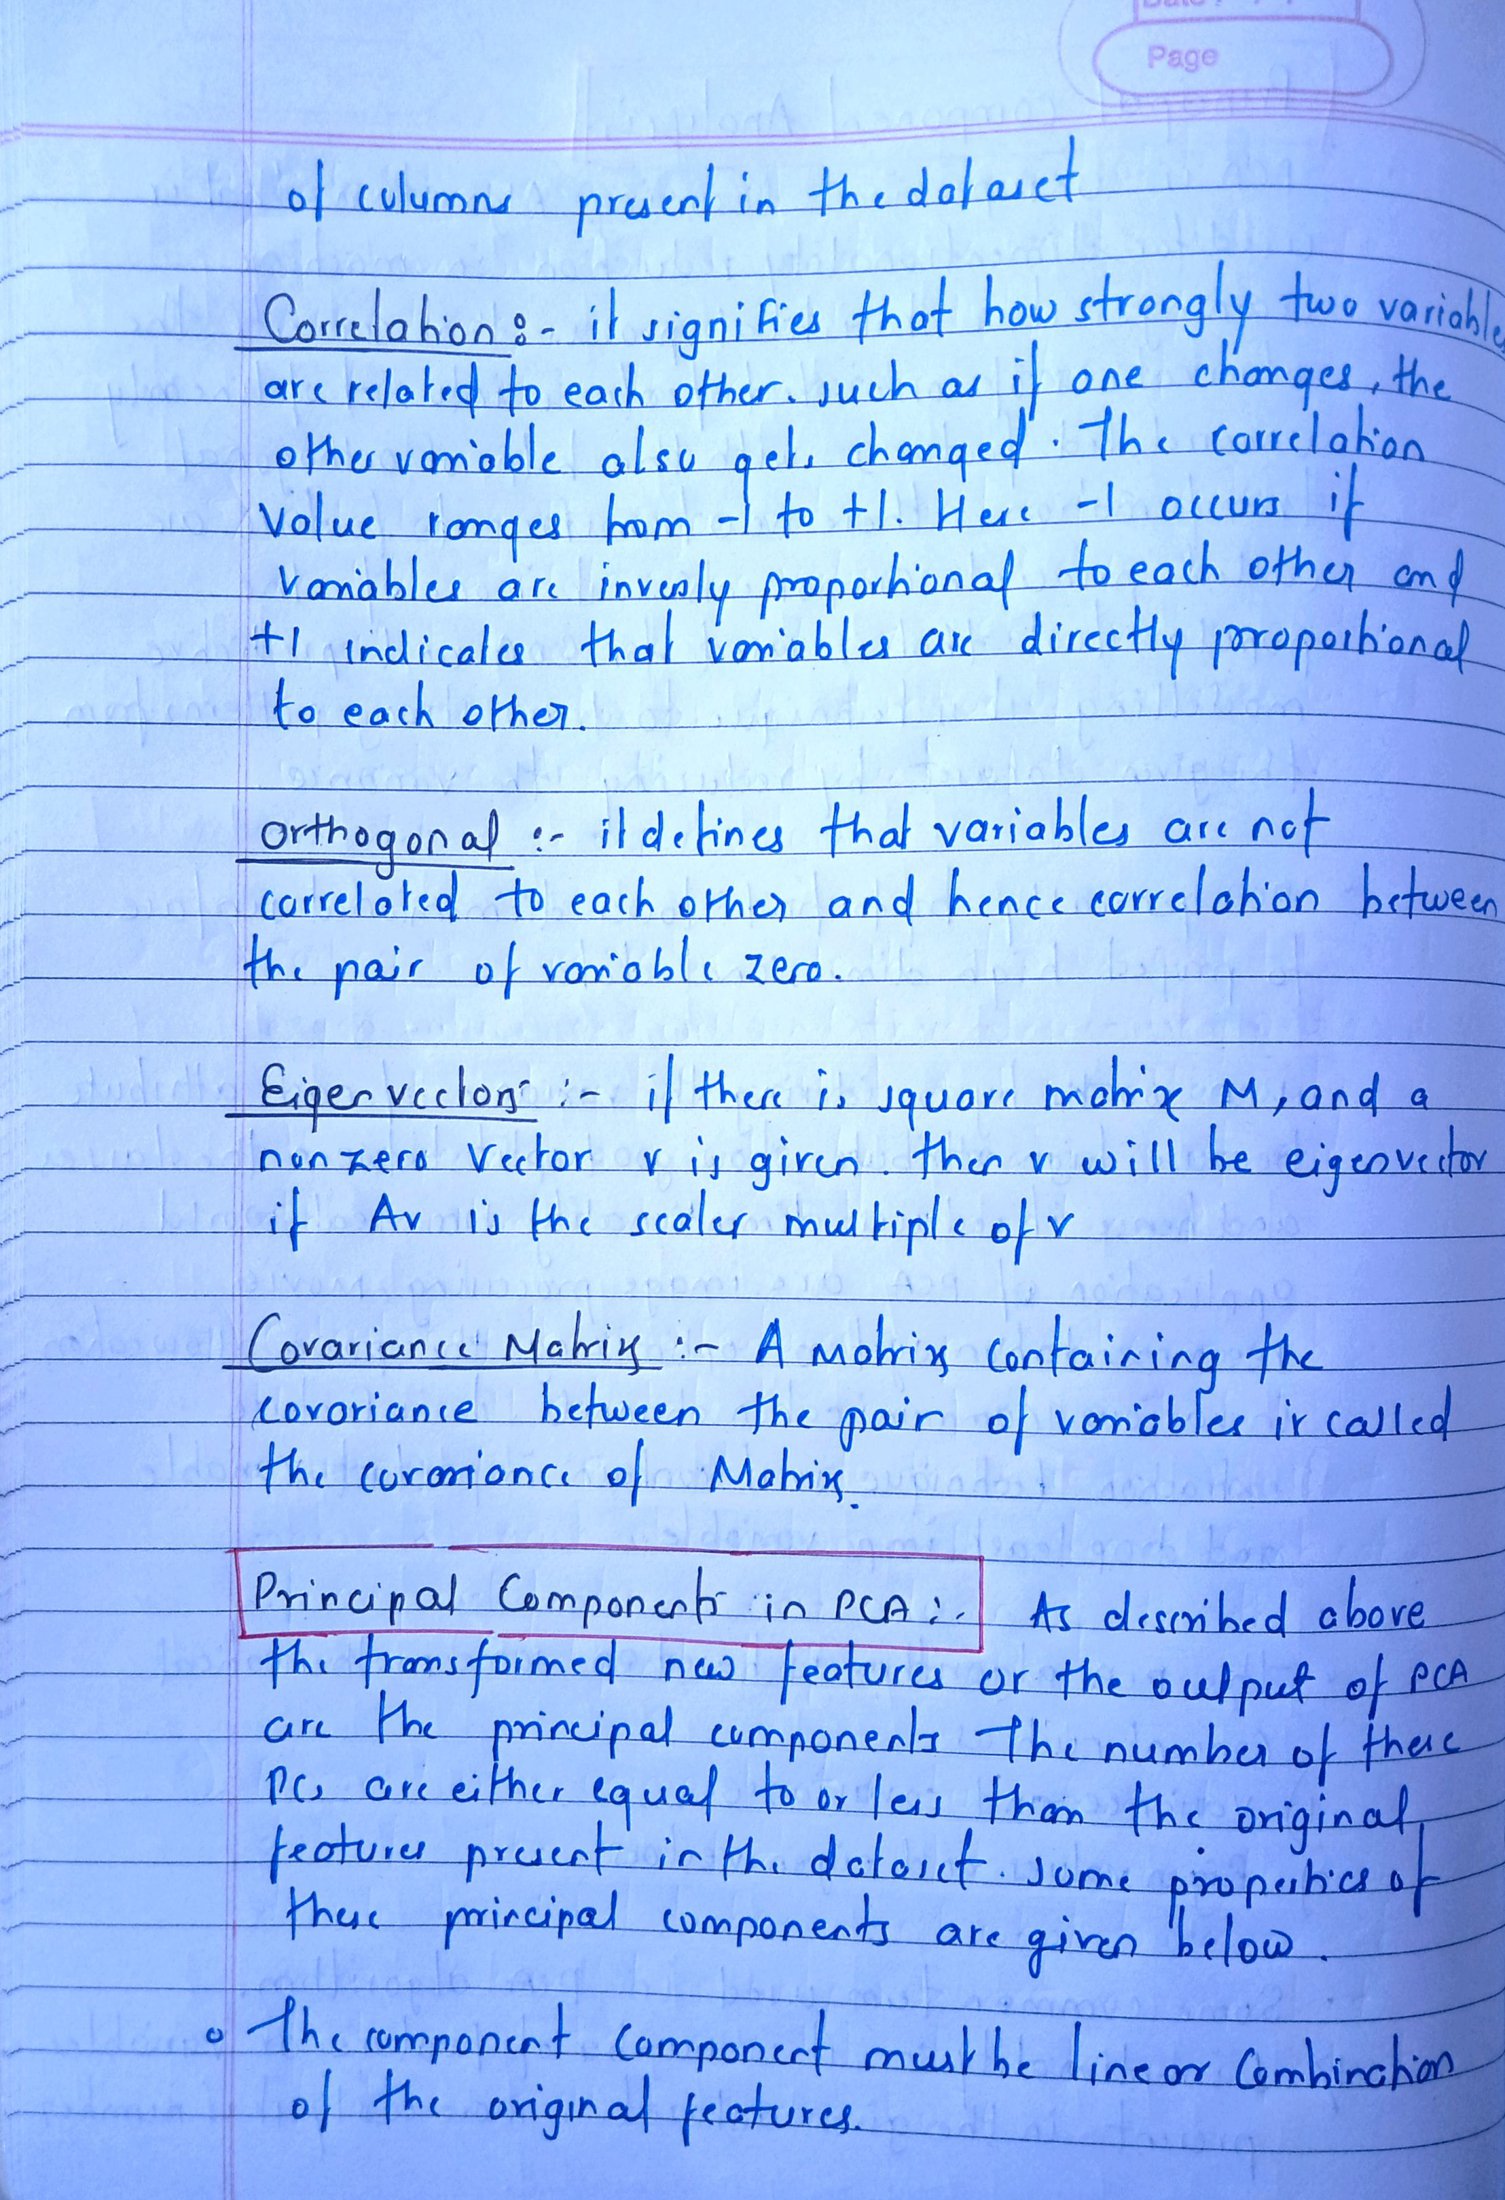 Page
of columns present in the dataset
Correlation :- it signifies that how strongly two variables
are related to each other. such as if one changes, the
other variable also gets changed. The correlation
value ranges from -1 to +1. Here -1 occurs if
variables are inversly proportional to each other and
+1 indicates that variables are directly proportional
to each other.
orthogonal :- it defines that variables are not
correlated to each other and hence correlation between
the pair of variable zero.
Eigen vectors :- if there is square matrix M, and a
non zero vector v is given. then v will be eigenvector
if Av is the scaler multiple of v
Covariance Matrix :- A Matrix containing the
covariance between the pair of variables is called
the covariance of Matrix.
Principal Components in PCA :- As described above
the transformed new features or the output of PCA
are the principal components The number of these
PCs are either equal to or less than the original
features present in the dataset. some properties of
these principal components are given below.
The component component must be linear Combination
of the original features.